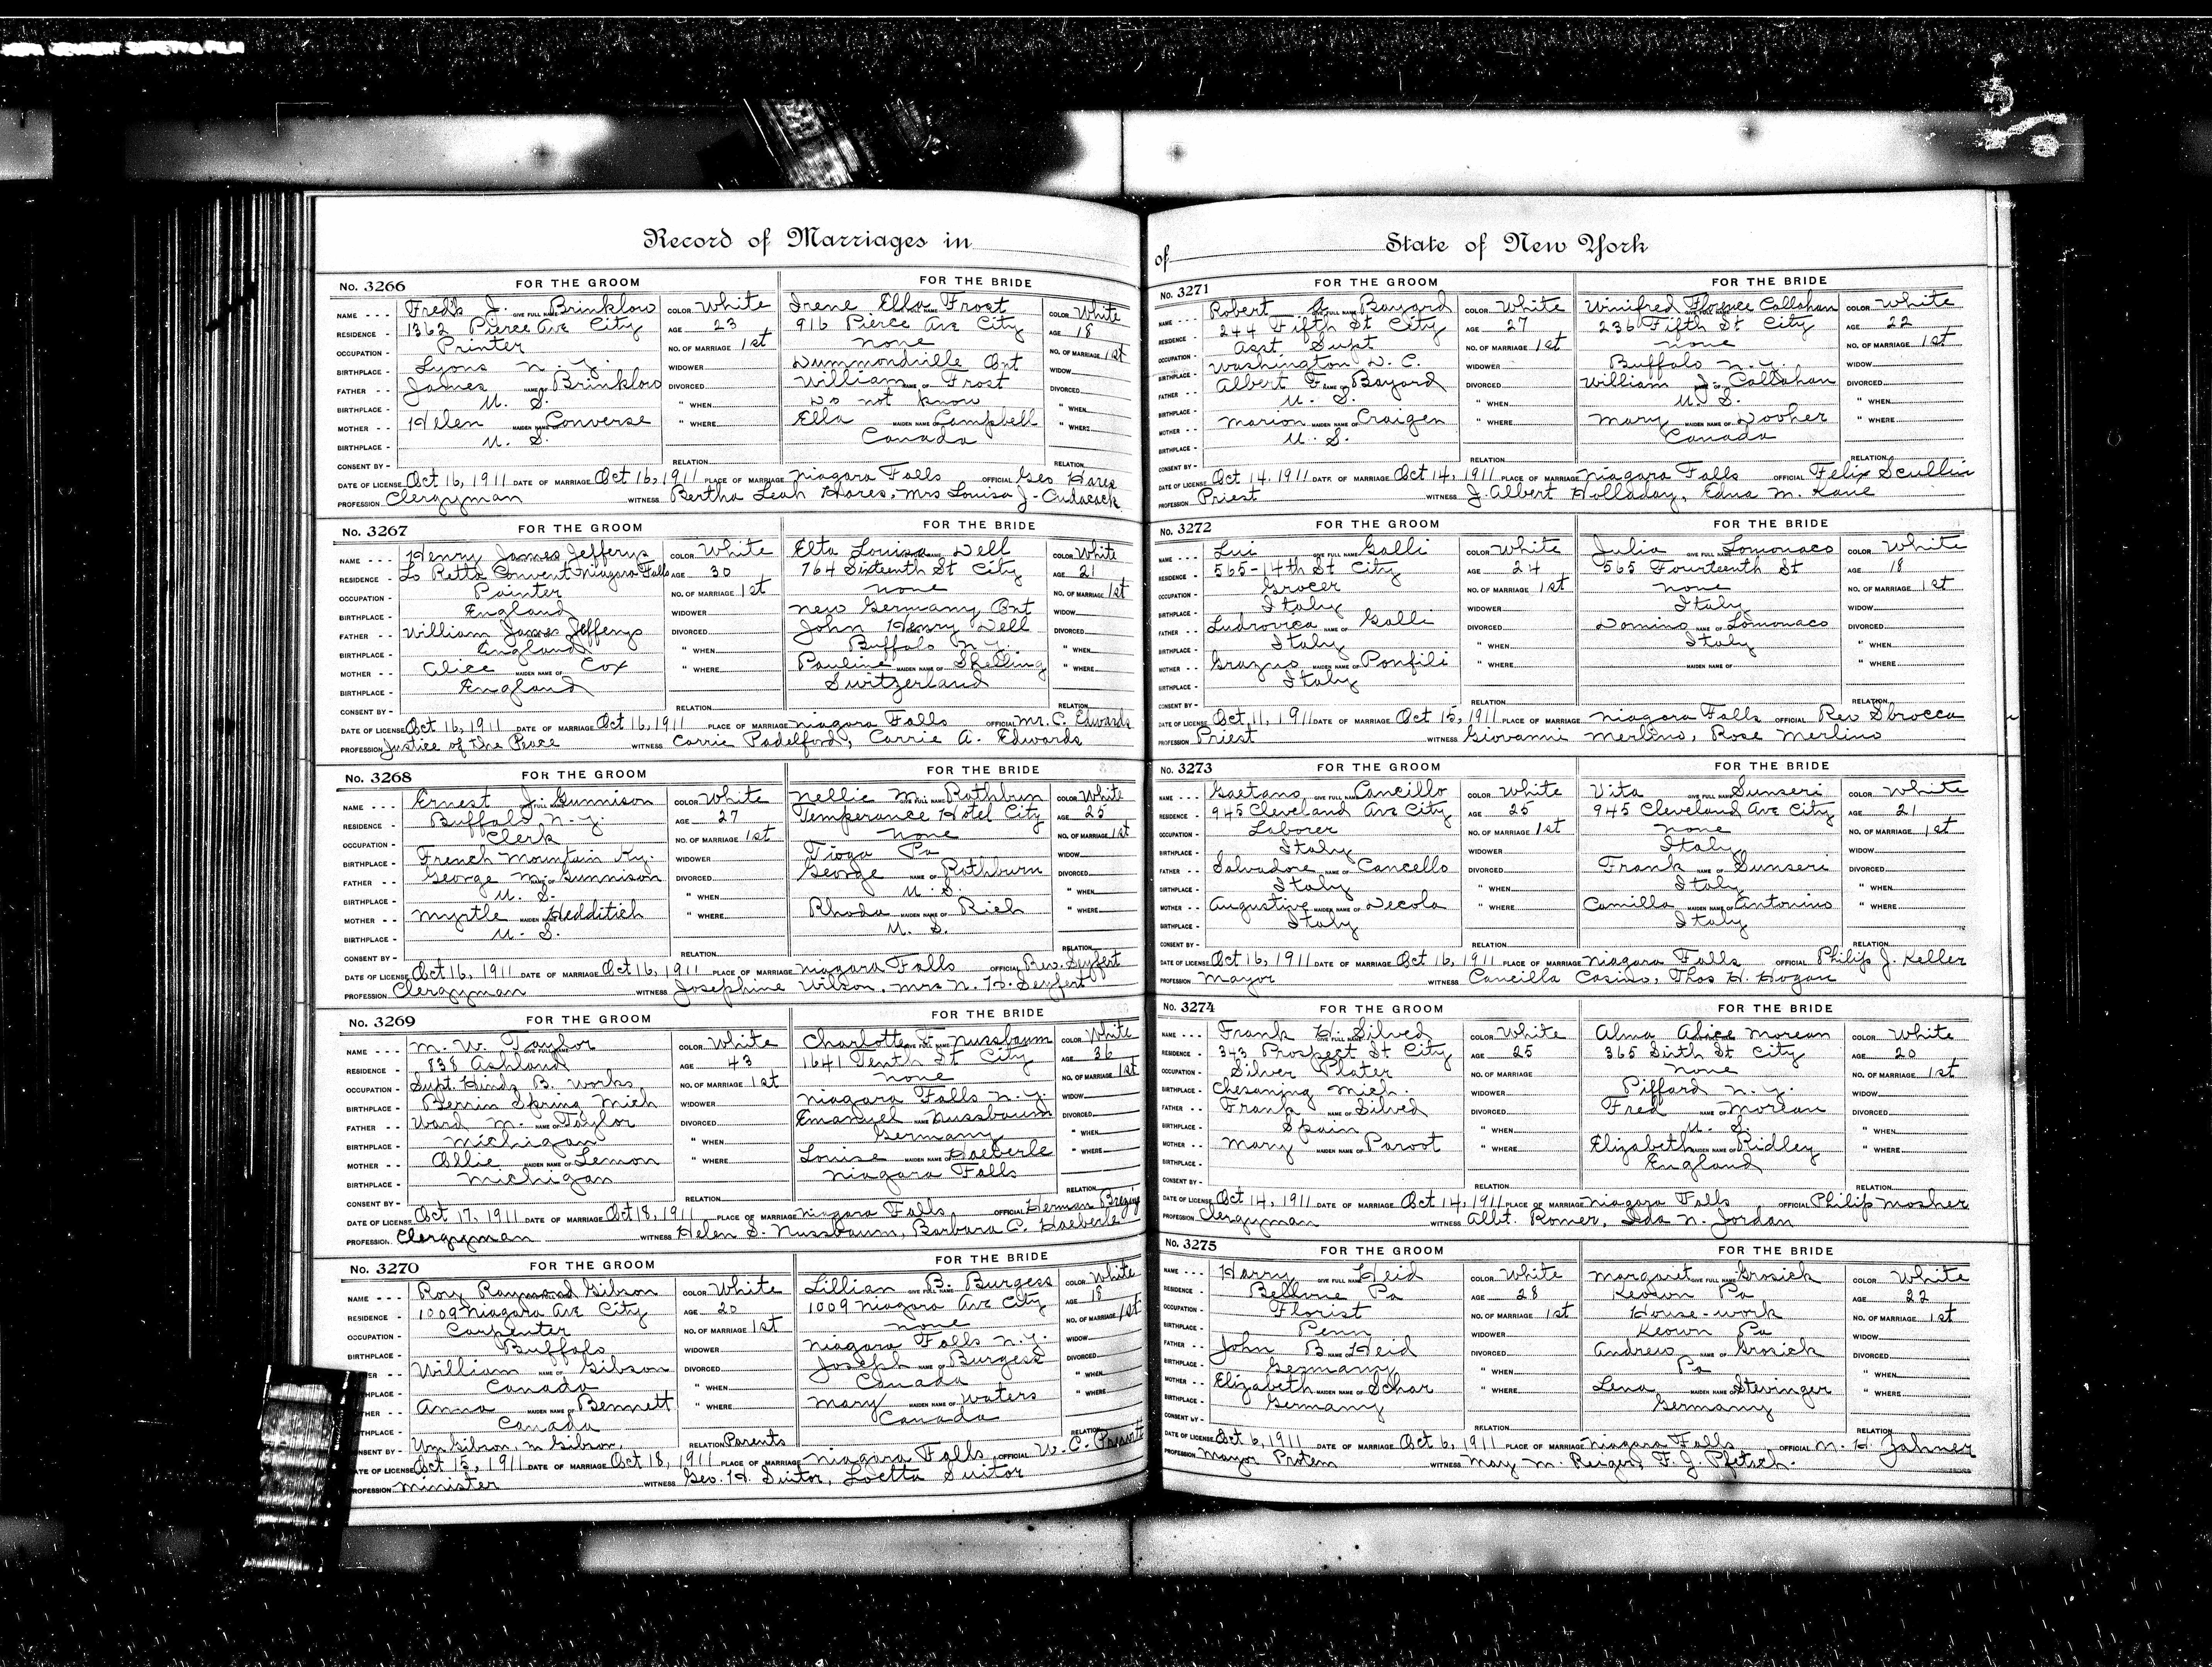 Record of Marriages in
No. 3266 FOR THE GROOM FOR THE BRIDE
NAME Fred'k J. Brinklow COLOR White Irene Ella Frost COLOR White
RESIDENCE 1362 Pierce Ave City AGE 23 916 Pierce Ave City AGE 18
OCCUPATION Printer NO. OF MARRIAGE 1st none NO. OF MARRIAGE 1st
BIRTHPLACE Lyons N.Y. WIDOWER Dummondville Ont WIDOW
FATHER James NAME OF Brinklow DIVORCED William NAME OF Frost DIVORCED
BIRTHPLACE U. S. " WHEN Do not know " WHEN
MOTHER Helen MAIDEN NAME OF Converse " WHERE Ella MAIDEN NAME OF Campbell " WHERE
BIRTHPLACE U. S. Canada
CONSENT BY RELATION RELATION
DATE OF LICENSE Oct 16, 1911 DATE OF MARRIAGE Oct 16, 1911 PLACE OF MARRIAGE Niagara Falls OFFICIAL Geo Hares
PROFESSION Clergyman WITNESS Bertha Leah Hares, Mrs Louisa J.
No. 3267 FOR THE GROOM FOR THE BRIDE
NAME Henry James Jefferys COLOR White Elta Louisa Dell COLOR White
RESIDENCE Lo Retta Convent Niagara Falls AGE 30 764 Sixteenth St City AGE 21
OCCUPATION Painter NO. OF MARRIAGE 1st none NO. OF MARRIAGE 1st
BIRTHPLACE England WIDOWER New Germany Ont WIDOW
FATHER William James Jefferys DIVORCED John Henry Dell DIVORCED
BIRTHPLACE England " WHEN Buffalo N.Y. " WHEN
MOTHER Alice MAIDEN NAME OF Cox " WHERE Pauline MAIDEN NAME OF Shelling " WHERE
BIRTHPLACE England Switzerland
CONSENT BY RELATION RELATION
DATE OF LICENSE Oct 16, 1911 DATE OF MARRIAGE Oct 16, 1911 PLACE OF MARRIAGE Niagara Falls OFFICIAL Mr. C. Edwards
PROFESSION Justice of the Peace WITNESS Carrie Padelford, Carrie A. Edwards
No. 3268 FOR THE GROOM FOR THE BRIDE
NAME Ernest J. Gunnison COLOR White Nellie M. Rathbun COLOR White
RESIDENCE Buffalo N.Y. AGE 27 Temperance Hotel City AGE 25
OCCUPATION Clerk NO. OF MARRIAGE 1st none NO. OF MARRIAGE 1st
BIRTHPLACE French Mountain Ky. WIDOWER Tioga Pa WIDOW
FATHER George M. Gunnison DIVORCED George NAME OF Rathburn DIVORCED
BIRTHPLACE U. S. " WHEN U. S. " WHEN
MOTHER Myrtle MAIDEN NAME Hedditich " WHERE Rhoda MAIDEN NAME OF Rich " WHERE
BIRTHPLACE U. S. U. S.
CONSENT BY RELATION RELATION
DATE OF LICENSE Oct 16, 1911 DATE OF MARRIAGE Oct 16, 1911 PLACE OF MARRIAGE Niagara Falls OFFICIAL Rev. Seyfert
PROFESSION Clergyman WITNESS Josephine Wilson, Mrs N. H. Seyfert
No. 3269 FOR THE GROOM FOR THE BRIDE
NAME M. W. Taylor COLOR White Charlotte F. Nussbaum COLOR White
RESIDENCE 838 Ashland AGE 43 1641 Tenth St City AGE 36
OCCUPATION Supt. B. Works NO. OF MARRIAGE 1st none NO. OF MARRIAGE 1st
BIRTHPLACE Berrin Spring Mich WIDOWER Niagara Falls N.Y. WIDOW
FATHER Ward M. NAME OF Taylor DIVORCED Emanuel NAME Nussbaum DIVORCED
BIRTHPLACE Michigan " WHEN Germany " WHEN
MOTHER Ollie MAIDEN NAME OF Lemon " WHERE Louise MAIDEN NAME OF Haeberle " WHERE
BIRTHPLACE Michigan Niagara Falls
CONSENT BY RELATION RELATION
DATE OF LICENSE Oct 17, 1911 DATE OF MARRIAGE Oct 18, 1911 PLACE OF MARRIAGE Niagara Falls OFFICIAL Herman Brezing
PROFESSION Clergyman WITNESS Helen S. Nussbaum, Barbara C. Haeberle
No. 3270 FOR THE GROOM FOR THE BRIDE
NAME Roy Raymond Gibson COLOR White Lillian B. Burgess COLOR White
RESIDENCE 1009 Niagara Ave City AGE 20 1009 Niagara Ave City AGE 18
OCCUPATION Carpenter NO. OF MARRIAGE 1st none NO. OF MARRIAGE 1st
BIRTHPLACE Buffalo WIDOWER Niagara Falls N.Y. WIDOW
William NAME OF Gibson DIVORCED Joseph NAME OF Burgess DIVORCED
Canada " WHEN Canada " WHEN
Anna MAIDEN NAME OF Bennett " WHERE Mary MAIDEN NAME OF Waters " WHERE
Canada Canada
Wm Gibson, M Gibson RELATION Parents RELATION
DATE OF LICENSE Oct 15, 1911 DATE OF MARRIAGE Oct 18, 1911 PLACE OF MARRIAGE Niagara Falls OFFICIAL W. C.
PROFESSION Minister WITNESS Geo. H. Suitor, Loetta Suitor
of State of New York
No. 3271 FOR THE GROOM FOR THE BRIDE
NAME Robert Bayard COLOR White Winifred Florence Callahan COLOR White
RESIDENCE 244 Fifth St City AGE 27 236 Fifth St City AGE 22
OCCUPATION Asst. Supt NO. OF MARRIAGE 1st none NO. OF MARRIAGE 1st
BIRTHPLACE Washington D. C. WIDOWER Buffalo N.Y. WIDOW
FATHER Albert F. NAME OF Bayard DIVORCED William J. Callahan DIVORCED
BIRTHPLACE U. S. " WHEN U. S. " WHEN
MOTHER Marion MAIDEN NAME OF Craigen " WHERE Mary MAIDEN NAME OF Dooher " WHERE
BIRTHPLACE U. S. Canada
CONSENT BY RELATION RELATION
DATE OF LICENSE Oct 14, 1911 DATE OF MARRIAGE Oct 14, 1911 PLACE OF MARRIAGE Niagara Falls OFFICIAL Felix Scullin
PROFESSION Priest WITNESS J. Albert Holladay, Edna M. Kane
No. 3272 FOR THE GROOM FOR THE BRIDE
NAME Lui GIVE FULL NAME Galli COLOR White Julia GIVE FULL NAME Lomonaco COLOR White
RESIDENCE 565-14th St City AGE 24 565 Fourteenth St AGE 18
OCCUPATION Grocer NO. OF MARRIAGE 1st none NO. OF MARRIAGE 1st
BIRTHPLACE Italy WIDOWER Italy WIDOW
FATHER Ludrovica NAME OF Galli DIVORCED Domino NAME OF Lomonaco DIVORCED
BIRTHPLACE Italy " WHEN Italy " WHEN
MOTHER Grazno MAIDEN NAME OF Ponfili " WHERE MAIDEN NAME OF " WHERE
BIRTHPLACE Italy
CONSENT BY RELATION RELATION
DATE OF LICENSE Oct 11, 1911 DATE OF MARRIAGE Oct 15, 1911 PLACE OF MARRIAGE Niagara Falls OFFICIAL Rev Sbrocca
PROFESSION Priest WITNESS Giovanni Merlino, Rose Merlino
No. 3273 FOR THE GROOM FOR THE BRIDE
NAME Gaetano GIVE FULL NAME Cancillo COLOR White Vita GIVE FULL NAME Sunseri COLOR White
RESIDENCE 945 Cleveland Ave City AGE 25 945 Cleveland Ave City AGE 21
OCCUPATION Laborer NO. OF MARRIAGE 1st none NO. OF MARRIAGE 1st
BIRTHPLACE Italy WIDOWER Italy WIDOW
FATHER Salvadore NAME OF Cancello DIVORCED Frank NAME OF Sunseri DIVORCED
BIRTHPLACE Italy " WHEN Italy " WHEN
MOTHER Augustine MAIDEN NAME OF Decola " WHERE Camilla MAIDEN NAME OF Antonino " WHERE
BIRTHPLACE Italy Italy
CONSENT BY RELATION RELATION
DATE OF LICENSE Oct 16, 1911 DATE OF MARRIAGE Oct 16, 1911 PLACE OF MARRIAGE Niagara Falls OFFICIAL Philip J. Keller
PROFESSION Mayor WITNESS Cancilla Casino, Thos H. Hogan
No. 3274 FOR THE GROOM FOR THE BRIDE
NAME Frank H. Silved COLOR White Alma Alice Morean COLOR White
RESIDENCE 343 Prospect St City AGE 25 365 Sixth St City AGE 20
OCCUPATION Silver Plater NO. OF MARRIAGE 1st none NO. OF MARRIAGE 1st
BIRTHPLACE Chesaning Mich. WIDOWER Piffard N.Y. WIDOW
FATHER Frank NAME OF Silved DIVORCED Fred NAME OF Morean DIVORCED
BIRTHPLACE Spain " WHEN U. S. " WHEN
MOTHER Mary MAIDEN NAME OF Paroot " WHERE Elizabeth MAIDEN NAME OF Ridley " WHERE
BIRTHPLACE England
CONSENT BY RELATION RELATION
DATE OF LICENSE Oct 14, 1911 DATE OF MARRIAGE Oct 14, 1911 PLACE OF MARRIAGE Niagara Falls OFFICIAL Philip Mosher
PROFESSION Clergyman WITNESS Albt. Romer, Ida N. Jordan
No. 3275 FOR THE GROOM FOR THE BRIDE
NAME Harry GIVE FULL NAME Heid COLOR White Margaret GIVE FULL NAME Grosick COLOR White
RESIDENCE Bellvue Pa AGE 28 Keown Pa AGE 22
OCCUPATION Florist NO. OF MARRIAGE 1st House-work NO. OF MARRIAGE 1st
BIRTHPLACE Penn WIDOWER Keown Pa WIDOW
FATHER John B. NAME OF Heid DIVORCED Andrew NAME OF Grosick DIVORCED
BIRTHPLACE Germany " WHEN Pa " WHEN
MOTHER Elizabeth MAIDEN NAME OF Schar " WHERE Lena MAIDEN NAME OF Stevinger " WHERE
BIRTHPLACE Germany Germany
CONSENT BY RELATION RELATION
DATE OF LICENSE Oct 6, 1911 DATE OF MARRIAGE Oct 6, 1911 PLACE OF MARRIAGE Niagara Falls OFFICIAL M. H. Jahner
PROFESSION Mayor Protem WITNESS May M. Reiger, F. J. Pfetsch.